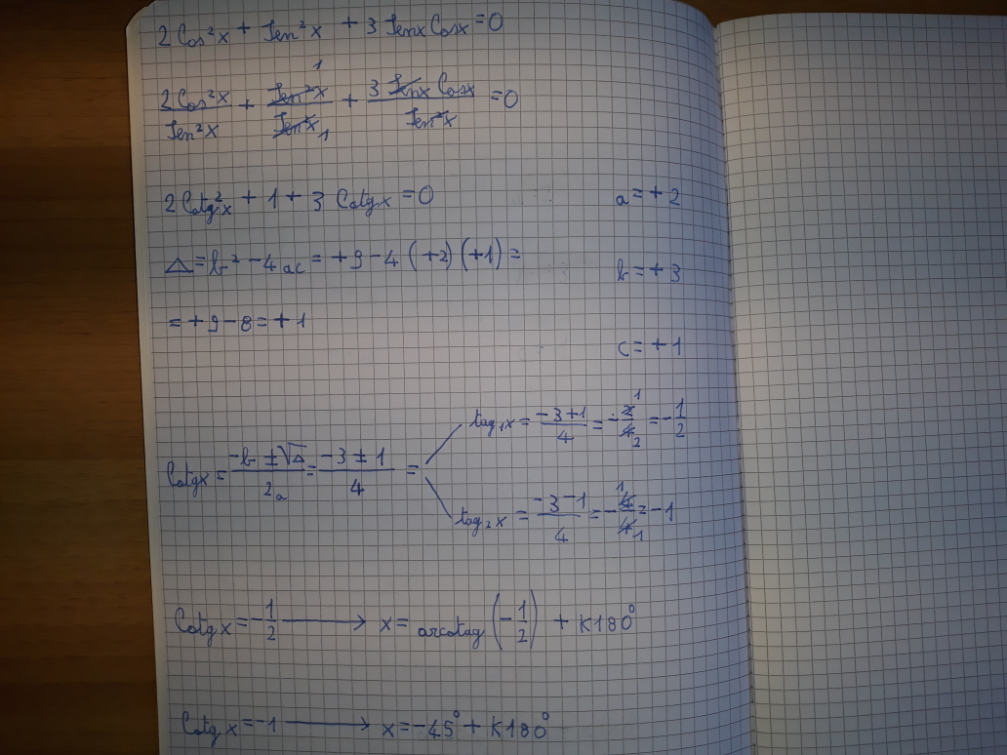 2Cos²x + Sen²x + 3 SenxCosx = 0
2Cos²x/Sen²x + Sen²x/Sen²x 1/1 + 3 Senx Cosx/Sen²x = 0
2Cotg²x + 1 + 3 Cotgx = 0 a = +2
Δ = b² - 4ac = +9 - 4 (+2) (+1) =
b = +3
= +9 - 8 = +1
c = +1
tag₁x = (-3+1)/4 = -2/4 1/2 = -1/2
Cotgx = (-b ± √Δ)/2a = (-3 ± 1)/4 =
tag₂x = (-3-1)/4 = -4/4 1/1 = -1
Cotgx = -1/2 → x = arcotag (-1/2) + K180°
Cotgx = -1 → x = -45° + K180°